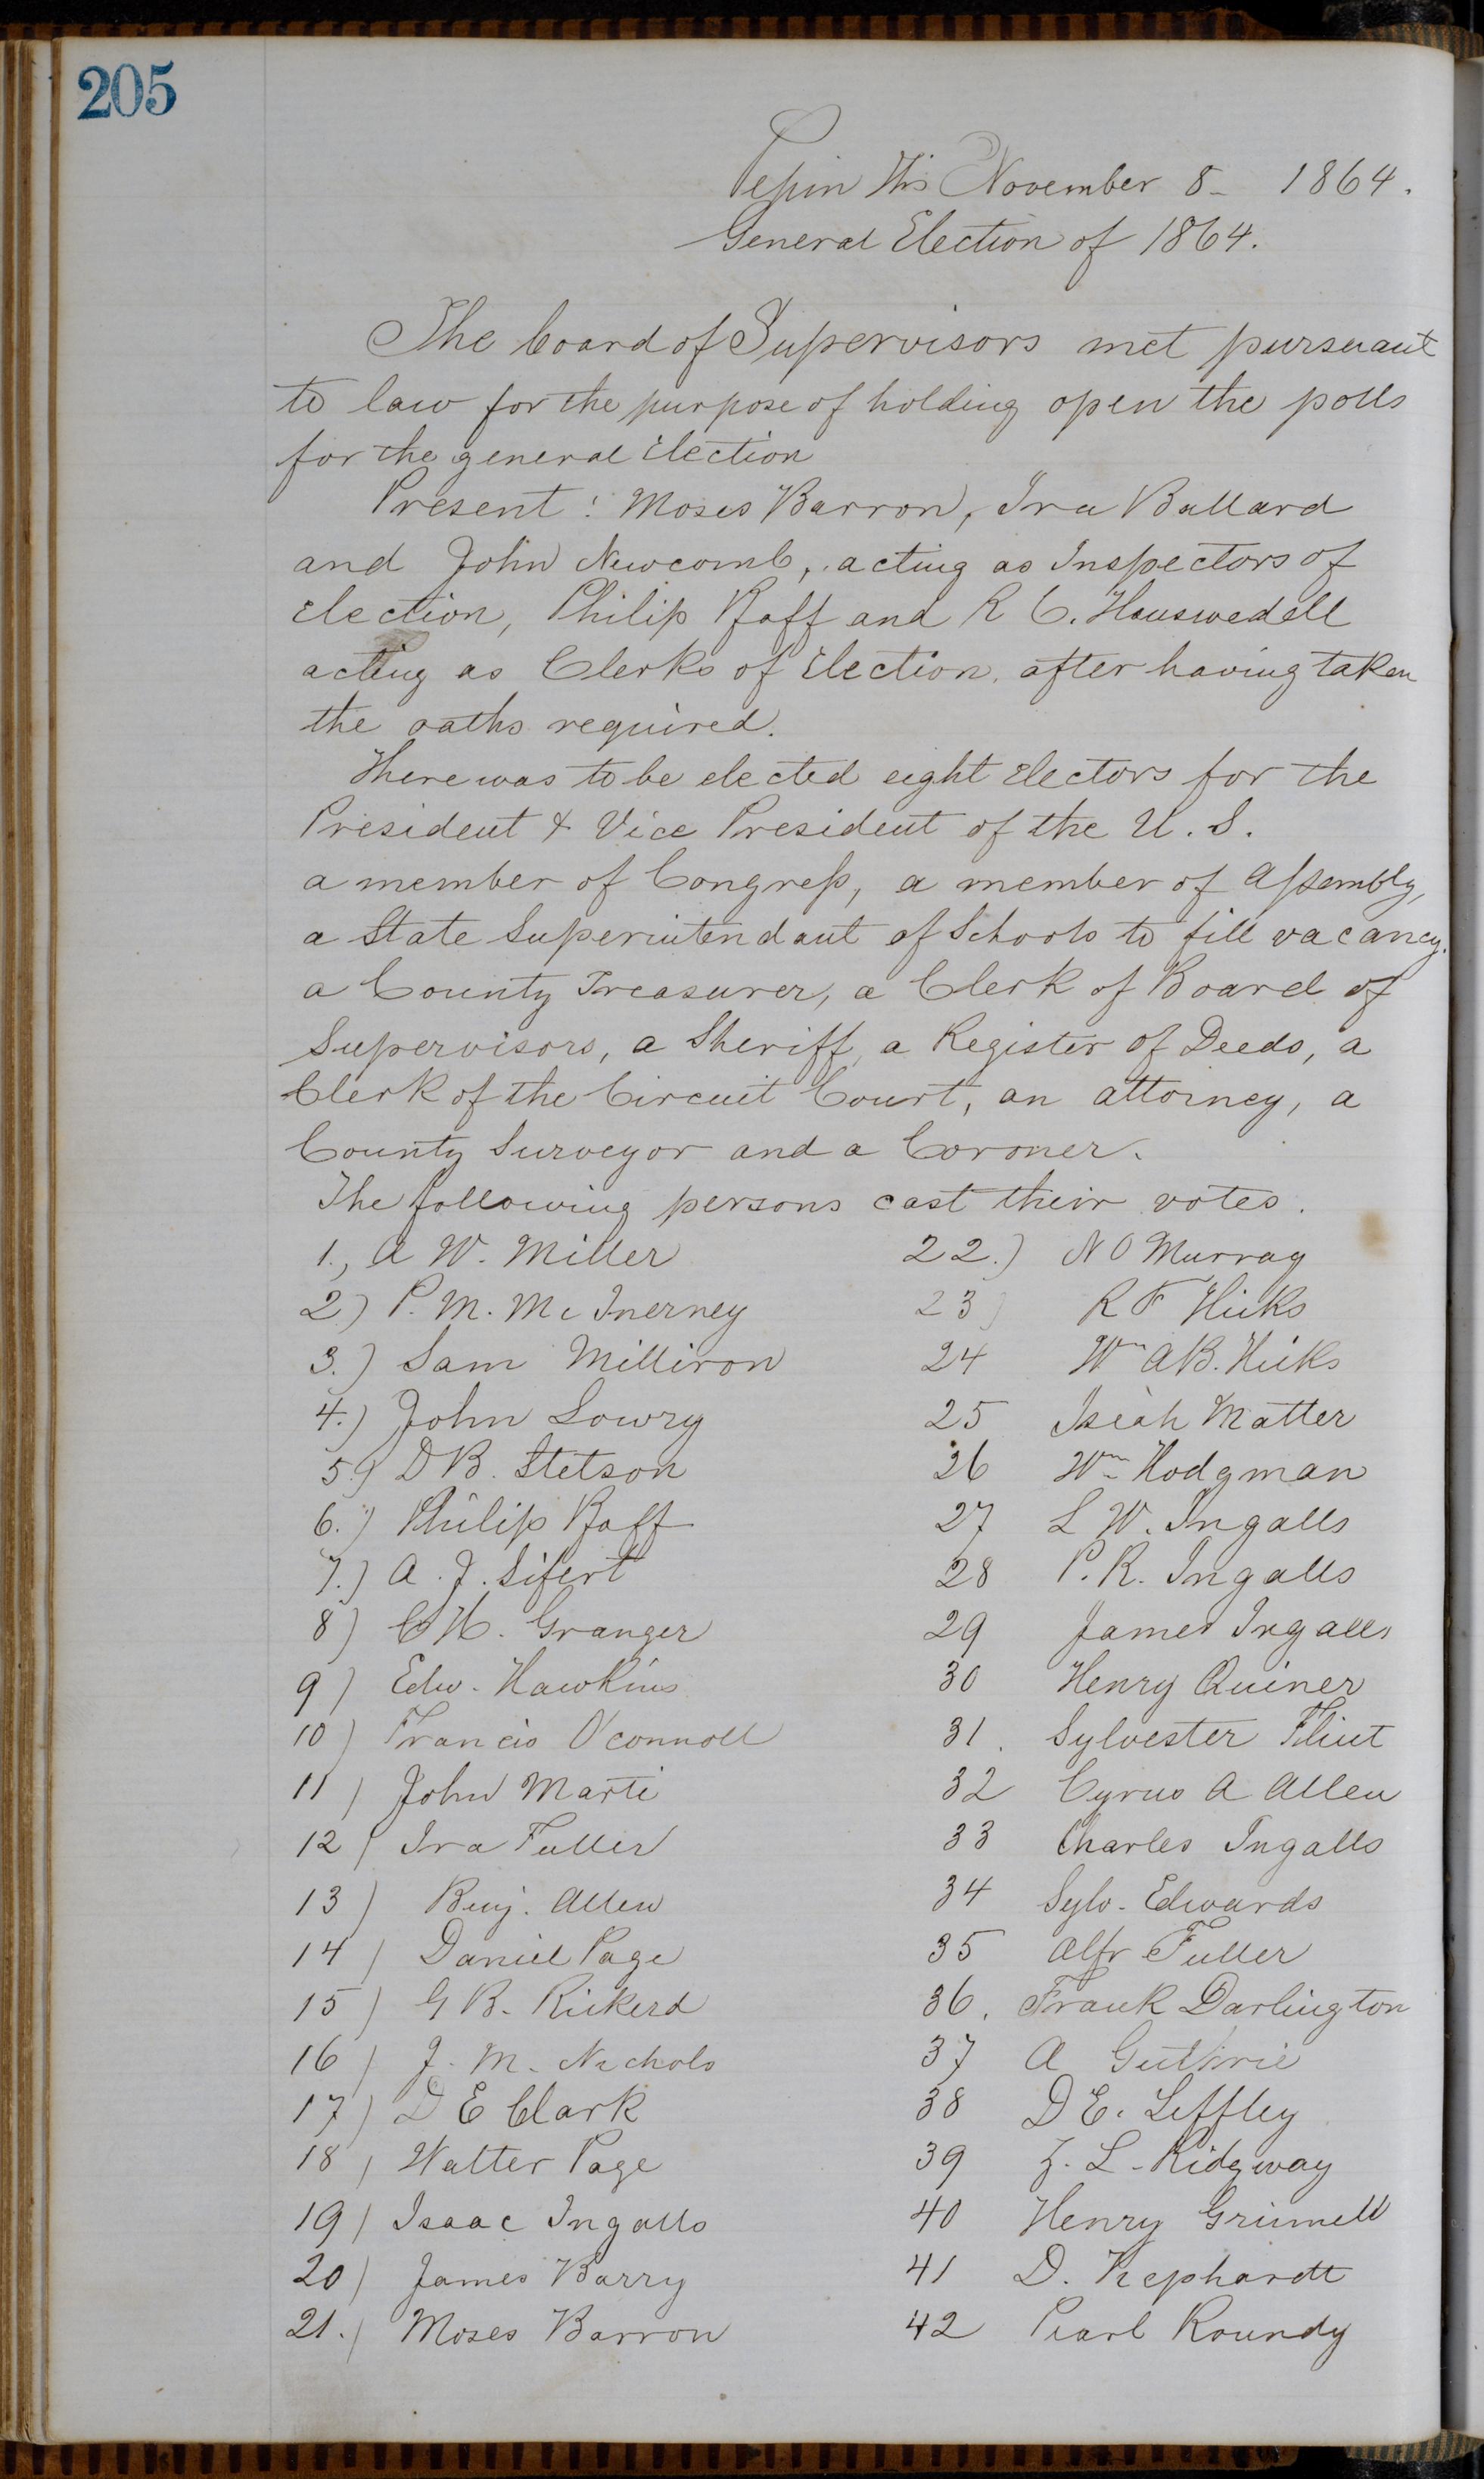 205
Pepin Wis November 8 - 1864.
General Election of 1864.
The board of Supervisors met pursuant
to law for the purpose of holding open the polls
for the general Election
Present: Moses Barron, Ira Ballard
and John Newcomb, acting as Inspectors of
Election, Philip Pfaff and R C. Hauswedell
acting as Clerks of Election, after having taken
the oaths required.
There was to be elected eight Electors for the
President & Vice President of the U. S.
a member of Congress, a member of Assembly,
a State Superintendant of Schools to fill vacancy.
a County Treasurer, a Clerk of Board of
Supervisors, a Sheriff, a Register of Deeds, a
Clerk of the Circuit Court, an attorney, a
County Surveyor and a Coroner.
The following persons cast their votes.
1., A W. Miller
2) P. M. Mc Inerney
3.) Sam Milliron
4.) John Lowry
5.) D B. Stetson
6.) Philip Pfaff
7.) A. J. Sifert
8) C H. Granger
9) Edw. Hawkins
10) Francis O'connoll
11) John Marti
12) Ira Fuller
13) Benj. Allen
14) Daniel Page
15) G B. Rickerd
16) J. M. Nichols
17) D E Clark
18) Walter Page
19) Isaac Ingalls
20) James Barry
21.) Moses Barron
22.) N O Murray
23) R F Hicks
24 Wm A B. Hicks
25 Isiah Matter
26 Wm Hodgman
27 L W. Ingalls
28 P. R. Ingalls
29 James Ingalls
30 Henry Quiner
31. Sylvester Flint
32 Cyrus A Allen
33 Charles Ingalls
34 Sylv. Edwards
35 Alfr Fuller
36. Frank Darlington
37 A Guthrie
38 D E. Leffley
39 Z. L. Ridgway
40 Henry Grinnell
41 D. Kephardt
42 Pearl Roundy